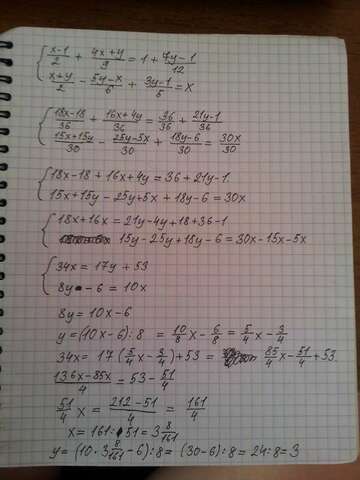 (x-1)/2 + (4x+y)/9 = 1 + (7y-1)/12
(x+y)/2 - (5y-x)/6 + (3y-1)/5 = x
(18x-18)/36 + (16x+4y)/36 = 36/36 + (21y-1)/36
(15x+15y)/30 - (25y-5x)/30 + (18y-6)/30 = 30x/30
18x-18 + 16x+4y = 36 + 21y-1
15x+15y - 25y+5x + 18y-6 = 30x
18x+16x = 21y-4y+18+36-1
15y-25y+18y-6 = 30x-15x-5x
34x = 17y + 53
8y - 6 = 10x
8y = 10x-6
y = (10x-6):8 = 10/8 x - 6/8 = 5/4 x - 3/4
34x = 17(5/4 x - 3/4)+53 = 85/4 x - 51/4 + 53
(136x-85x)/4 = 53 - 51/4
51/4 x = (212-51)/4 = 161/4
x = 161:51 = 3 8/161
y = (10·3 8/161 - 6):8 = (30-6):8 = 24:8 = 3